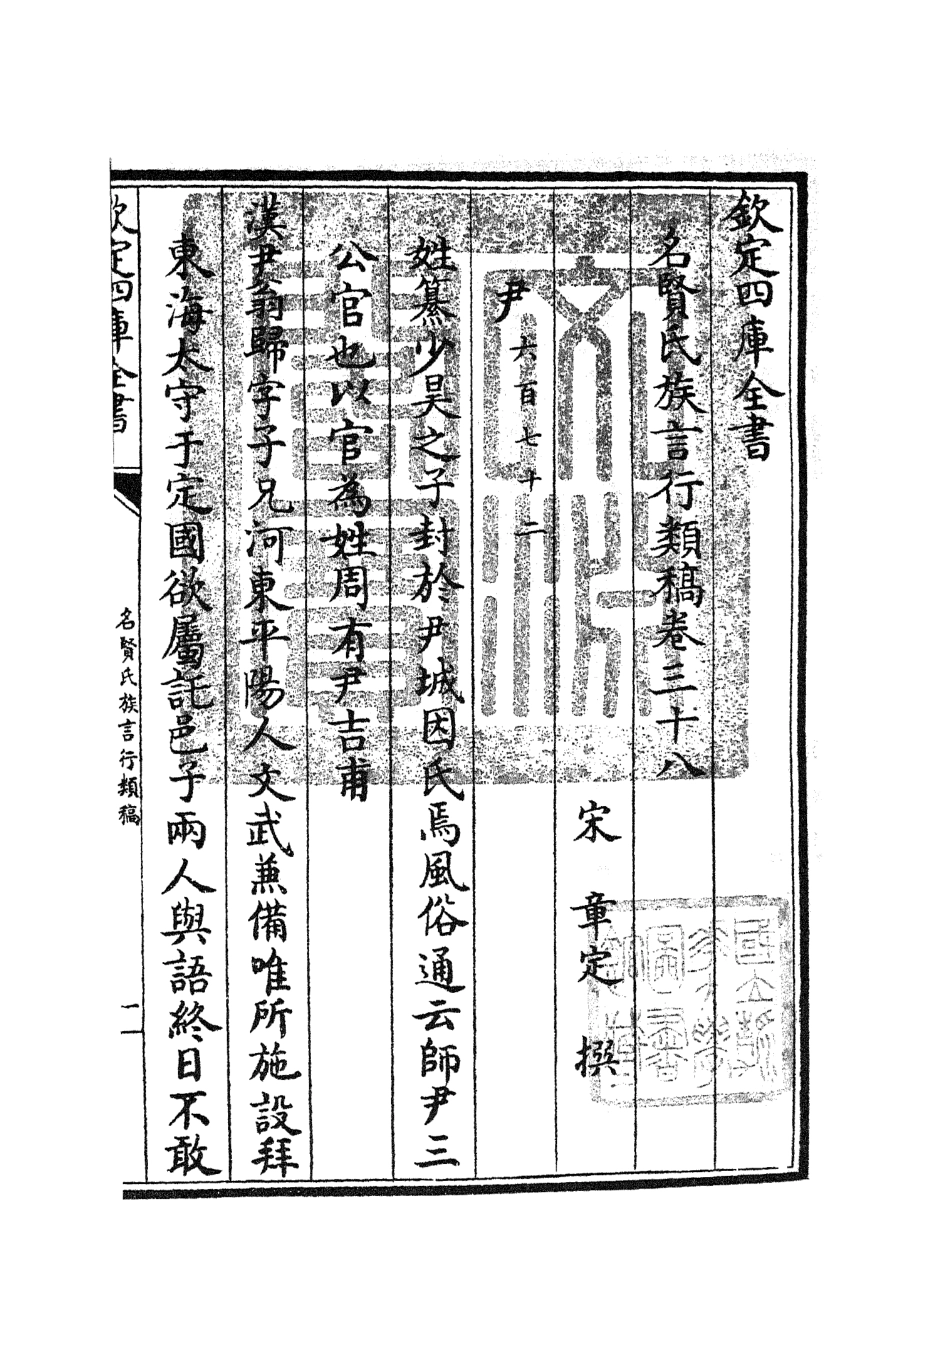 欽定四庫全書
名賢氏族言行類稿卷三十八
宋 章定 撰
尹 六百七十二
姓纂少昊之子封於尹城因氏焉風俗通云師尹三
公官也以官為姓周有尹吉甫
漢尹翁歸字子兄河東平陽人文武兼備唯所施設拜
東海太守于定國欲屬託邑子兩人與語終日不敢
欽定四庫全書
名賢氏族言行類稿
一